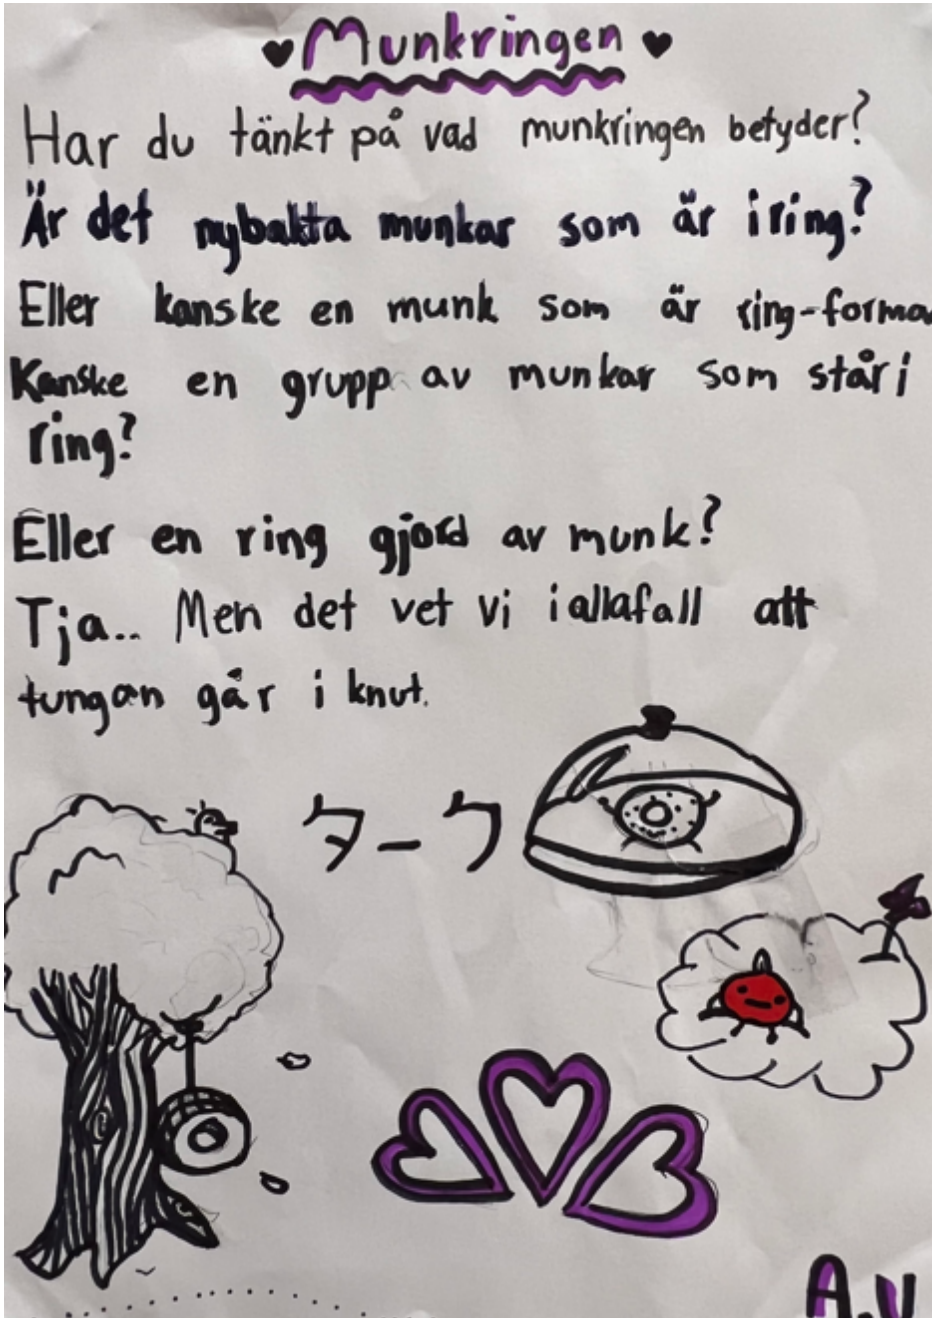 Munkringen
Har du tänkt på vad munkringen betyder?
Är det nybakta munkar som är i ring?
Eller kanske en munk som är ring-forma
Kanske en grupp av munkar som står i
ring?
Eller en ring gjord av munk?
Tja... Men det vet vi iallafall att
tungan går i knut.
ターク
A.V